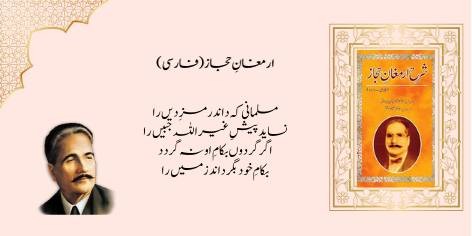 ارمغانِ حجاز (فارسی)
مسلمانی کہ داند رمزِ دیں را
نساید پیشِ غیر اللہ جبیں را
اگر گردوں بکامِ او نہ گردد
بکامِ خود بگرداند زمیں را
شرح ارمغانِ حجاز